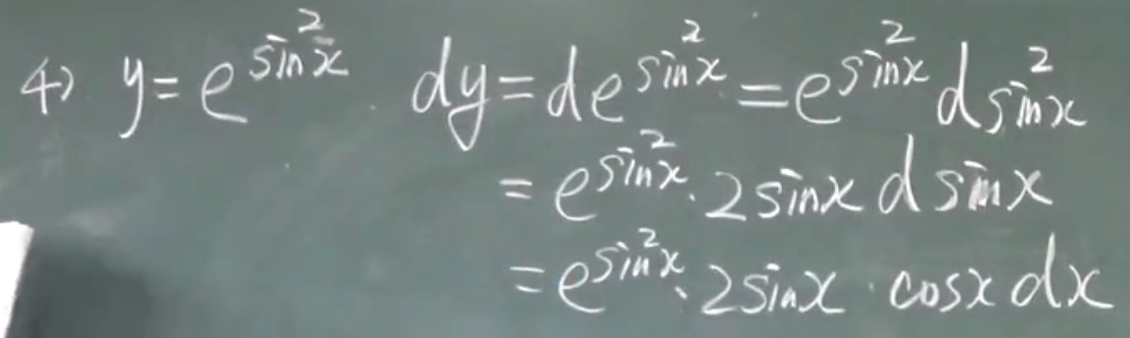 4) y = e^{sin²x}  dy = de^{sin²x} = e^{sin²x} d sin²x
= e^{sin²x} · 2 sinx d sinx
= e^{sin²x} · 2 sinx · cosx dx